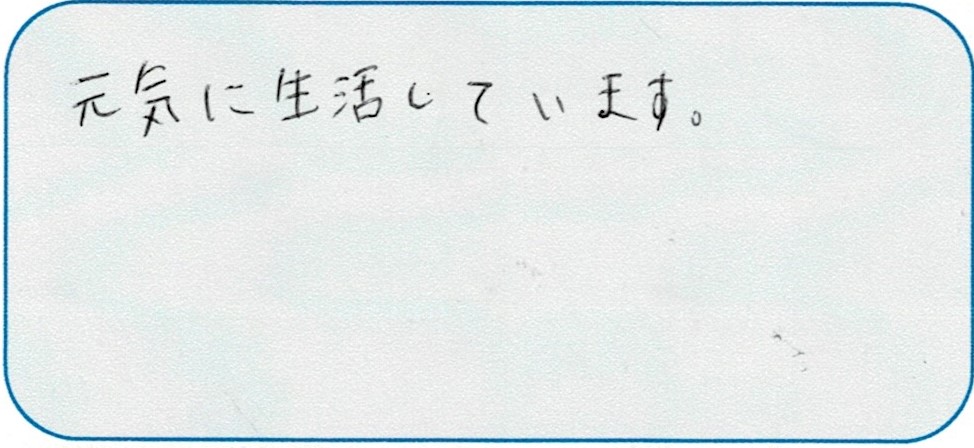 元気に生活しています。